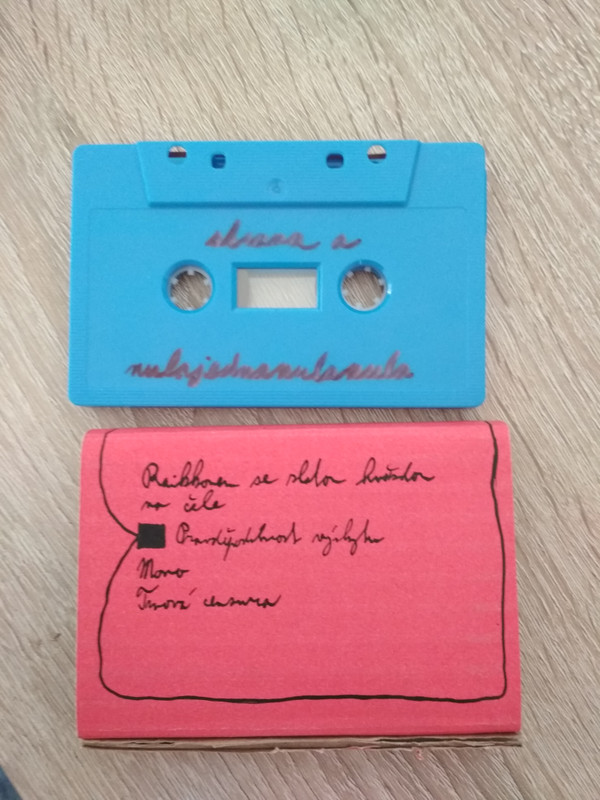 strana a
nulajednanulanula
Raikkonen se zlatou hvězdou
na čele
Pravděpodobnost výskytu
Mono
Tmavá